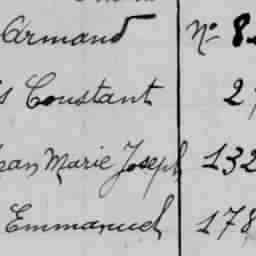 Armand No 8
Constant 2
Jean Marie Joseph 132
Emmanuel 178